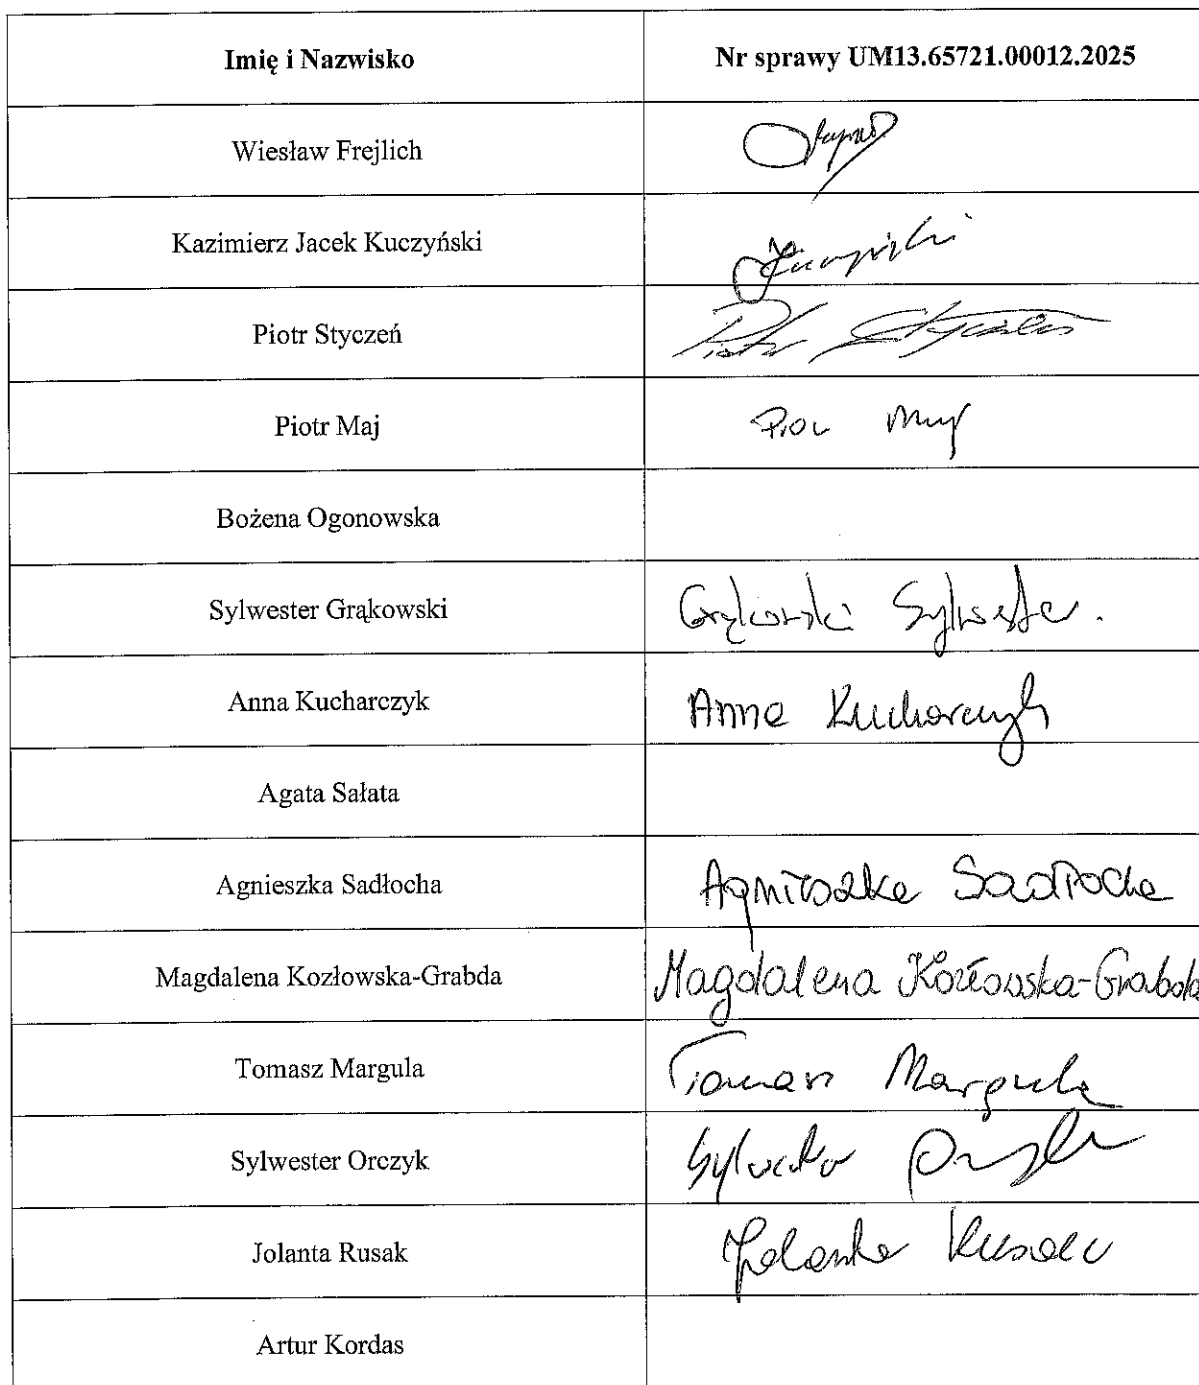 Imię i Nazwisko Nr sprawy UM13.65721.00012.2025
Wiesław Frejlich
Kazimierz Jacek Kuczyński Kuczyński
Piotr Styczeń Piotr Styczeń
Piotr Maj Piotr Maj
Bożena Ogonowska
Sylwester Grąkowski Grąkowski Sylwester.
Anna Kucharczyk Anna Kucharczyk
Agata Sałata
Agnieszka Sadłocha Agnieszka Sadłocha
Magdalena Kozłowska-Grabda Magdalena Kozłowska-Grabda
Tomasz Margula Tomasz Margula
Sylwester Orczyk Sylwester Orczyk
Jolanta Rusak Jolanta Rusak
Artur Kordas